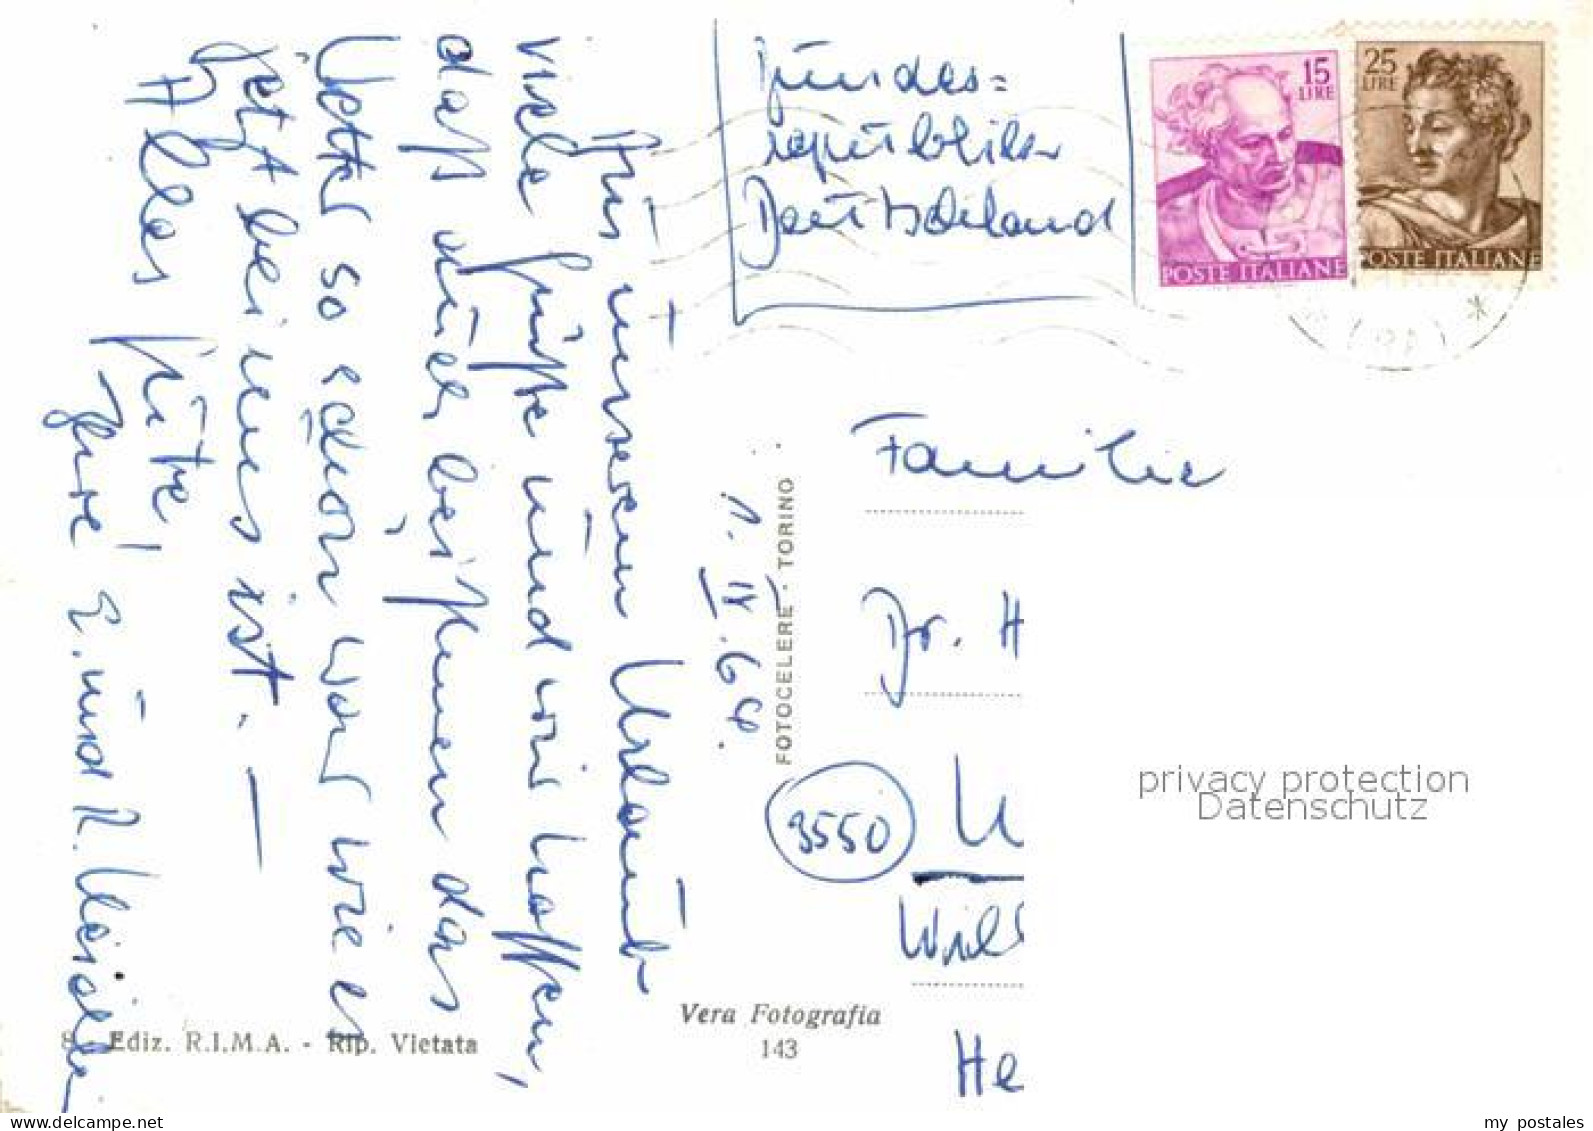 Bundes=
republik
Deutschland
15
LIRE
POSTE ITALIANE
25
LIRE
POSTE ITALIANE
1. IV. 64.
Aus unserem Urlaub
viele Grüße und wir hoffen,
daß auch bei Ihnen das
Wetter so schön war wie es
jetzt bei uns ist. —
Alles Gute!
Ihre E. und R.
FOTOCELERE · TORINO
Familie
Dr. H
3550
Will
He
Vera Fotografia
143
Ediz. R.I.M.A. - Rip. Vietata
privacy protection
Datenschutz
my postales